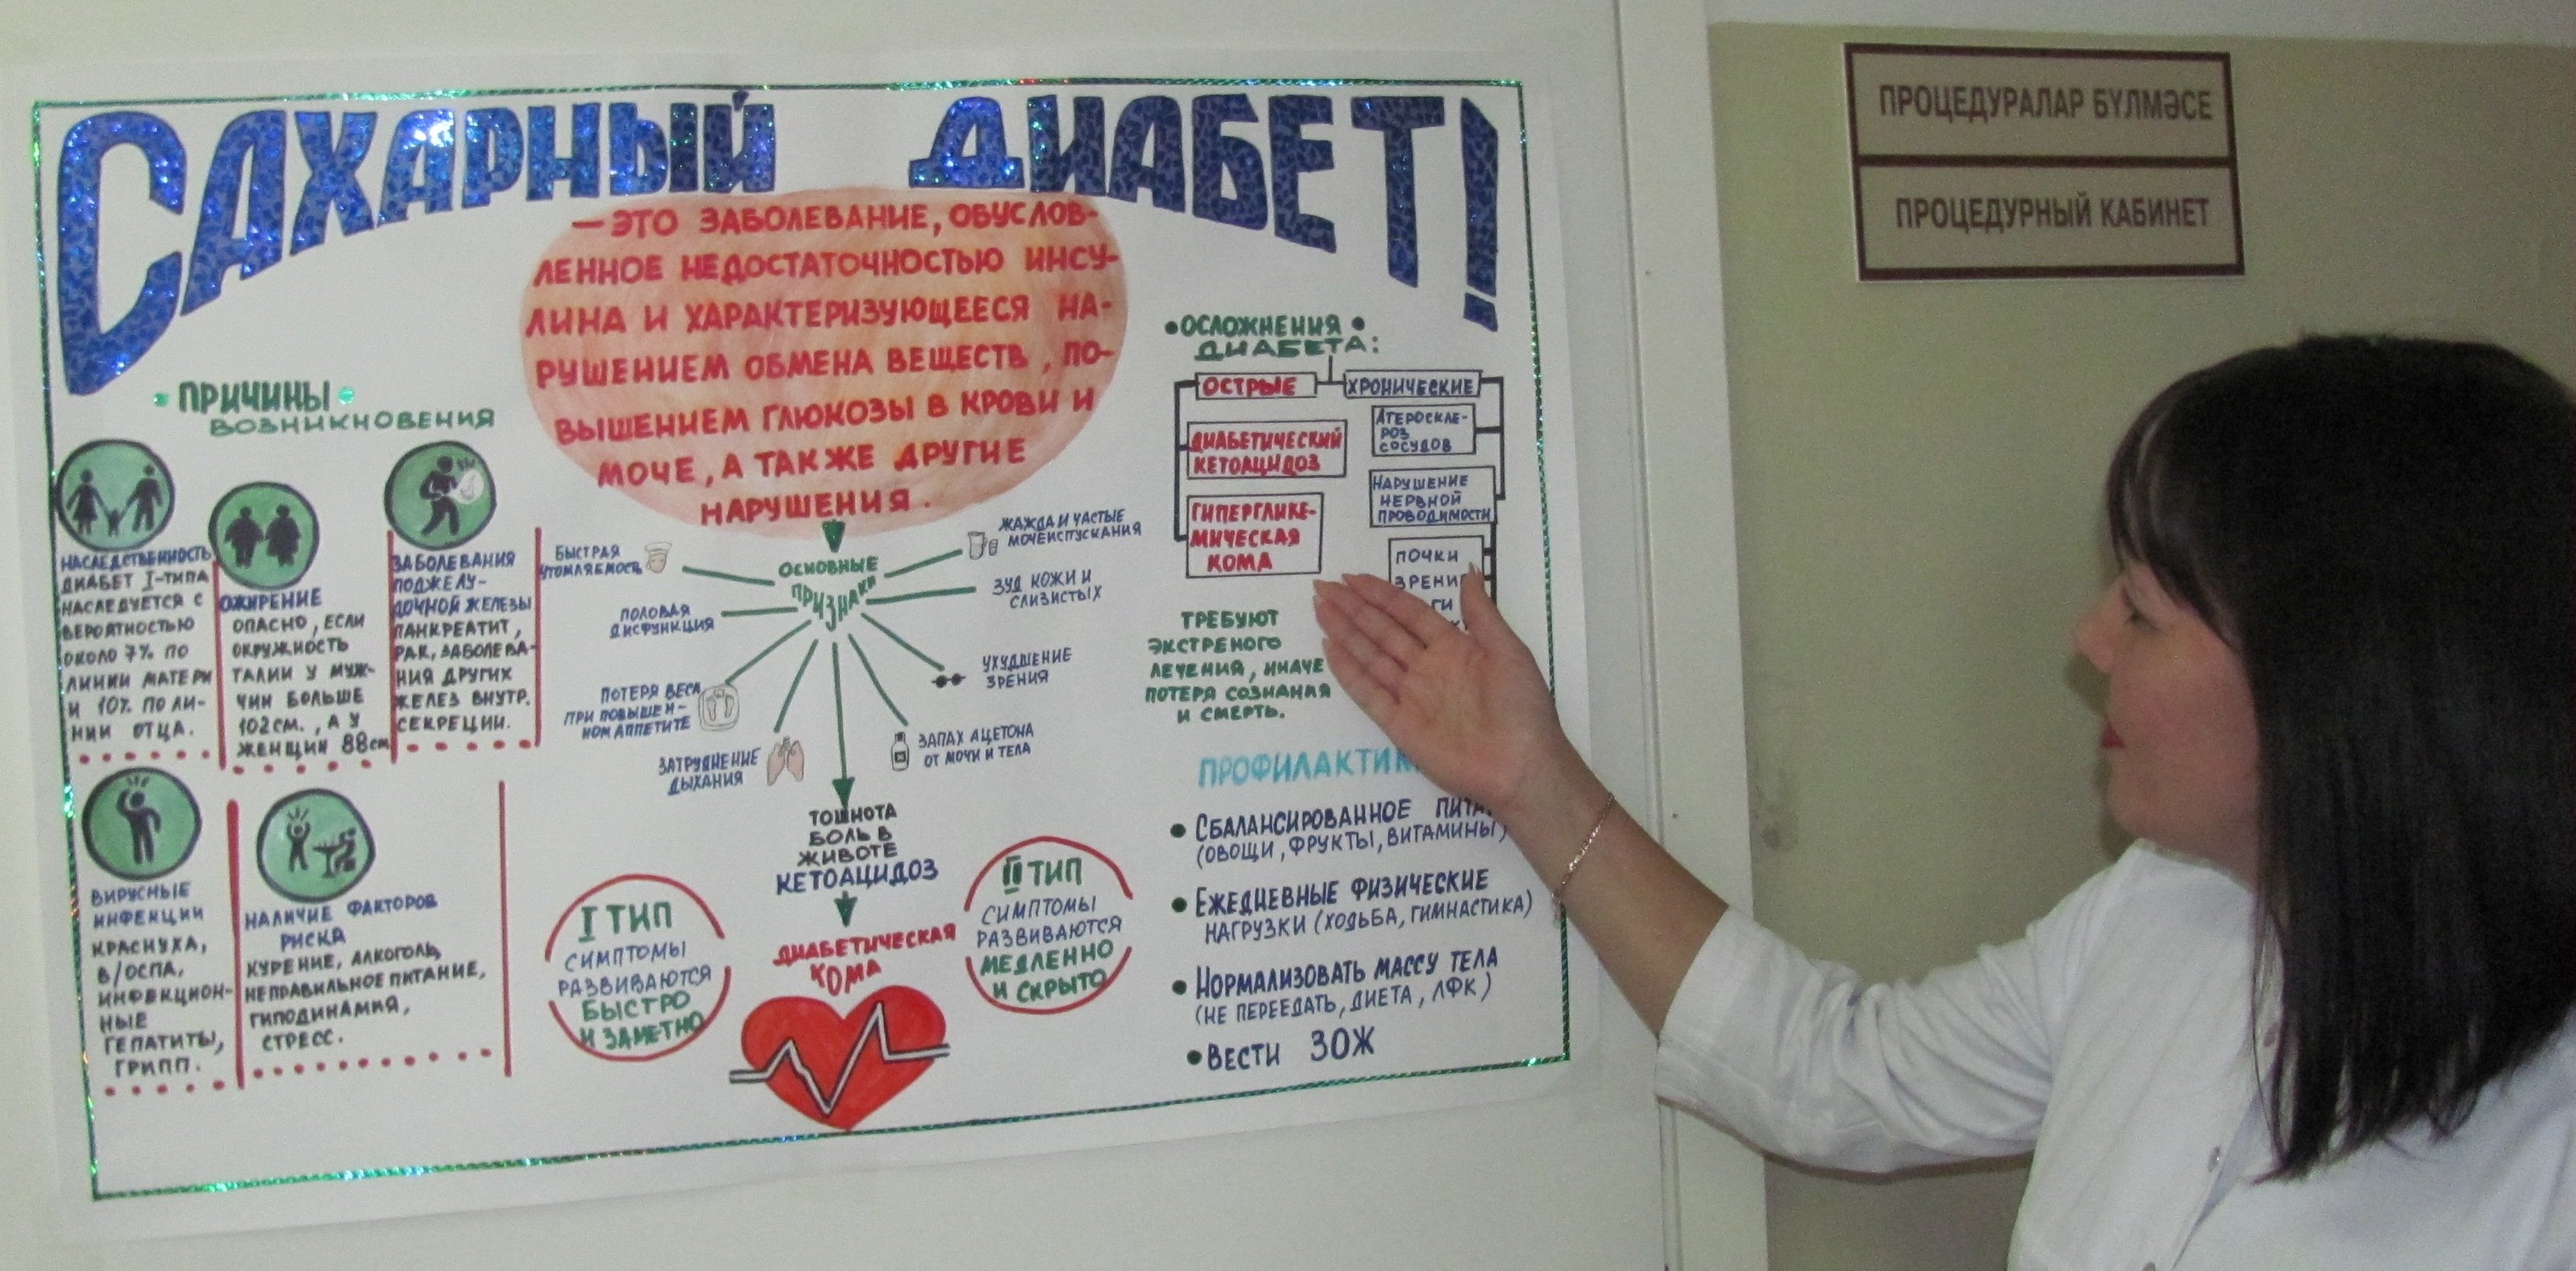 САХАРНЫЙ ДИАБЕТ!
— ЭТО ЗАБОЛЕВАНИЕ, ОБУСЛОВ-
ЛЕННОЕ НЕДОСТАТОЧНОСТЬЮ ИНСУ-
ЛИНА И ХАРАКТЕРИЗУЮЩЕЕСЯ НА-
РУШЕНИЕМ ОБМЕНА ВЕЩЕСТВ, ПО-
ВЫШЕНИЕМ ГЛЮКОЗЫ В КРОВИ И
МОЧЕ, А ТАКЖЕ ДРУГИЕ
НАРУШЕНИЯ.
• ПРИЧИНЫ •
ВОЗНИКНОВЕНИЯ
НАСЛЕДСТВЕННОСТЬ
ДИАБЕТ I-ТИПА
НАСЛЕДУЕТСЯ С
ВЕРОЯТНОСТЬЮ
ОКОЛО 7% ПО
ЛИНИИ МАТЕРИ
И 10% ПО ЛИ-
НИИ ОТЦА.
ОЖИРЕНИЕ
ОПАСНО, ЕСЛИ
ОКРУЖНОСТЬ
ТАЛИИ У МУЖ-
ЧИН БОЛЬШЕ
102СМ., А У
ЖЕНЩИН 88см
ЗАБОЛЕВАНИЯ
ПОДЖЕЛУ-
ДОЧНОЙ ЖЕЛЕЗЫ
ПАНКРЕАТИТ,
РАК, ЗАБОЛЕВА-
НИЯ ДРУГИХ
ЖЕЛЕЗ ВНУТР.
СЕКРЕЦИИ.
ВИРУСНЫЕ
ИНФЕКЦИИ
КРАСНУХА,
В/ОСПА,
ИНФЕКЦИОН-
НЫЕ
ГЕПАТИТЫ,
ГРИПП.
НАЛИЧИЕ ФАКТОРОВ
РИСКА
КУРЕНИЕ, АЛКОГОЛЬ,
НЕПРАВИЛЬНОЕ ПИТАНИЕ,
ГИПОДИНАМИЯ,
СТРЕСС.
ОСНОВНЫЕ
ПРИЗНАКИ
БЫСТРАЯ
УТОМЛЯЕМОСТЬ
ПОЛОВАЯ
ДИСФУНКЦИЯ
ПОТЕРЯ ВЕСА
ПРИ ПОВЫШЕН-
НОМ АППЕТИТЕ
ЗАТРУДНЕНИЕ
ДЫХАНИЯ
ЖАЖДА И ЧАСТЫЕ
МОЧЕИСПУСКАНИЯ
ЗУД КОЖИ И
СЛИЗИСТЫХ
УХУДШЕНИЕ
ЗРЕНИЯ
ЗАПАХ АЦЕТОНА
ОТ МОЧИ И ТЕЛА
ТОШНОТА
БОЛЬ В
ЖИВОТЕ
КЕТОАЦИДОЗ
ДИАБЕТИЧЕСКАЯ
КОМА
I ТИП
СИМПТОМЫ
РАЗВИВАЮТСЯ
БЫСТРО
И ЗАМЕТНО
II ТИП
СИМПТОМЫ
РАЗВИВАЮТСЯ
МЕДЛЕННО
И СКРЫТО
• ОСЛОЖНЕНИЯ •
ДИАБЕТА:
ОСТРЫЕ
ДИАБЕТИЧЕСКИЙ
КЕТОАЦИДОЗ
ГИПЕРГЛИКЕ-
МИЧЕСКАЯ
КОМА
ХРОНИЧЕСКИЕ
АТЕРОСКЛЕ-
РОЗ
СОСУДОВ
НАРУШЕНИЕ
НЕРВНОЙ
ПРОВОДИМОСТИ
ПОЧКИ
ЗРЕНИЕ
ТРЕБУЮТ
ЭКСТРЕНОГО
ЛЕЧЕНИЯ, ИНАЧЕ
ПОТЕРЯ СОЗНАНИЯ
И СМЕРТЬ.
ПРОФИЛАКТИК
• СБАЛАНСИРОВАННОЕ ПИТА
(ОВОЩИ, ФРУКТЫ, ВИТАМИНЫ)
• ЕЖЕДНЕВНЫЕ ФИЗИЧЕСКИЕ
НАГРУЗКИ (ХОДЬБА, ГИМНАСТИКА)
• НОРМАЛИЗОВАТЬ МАССУ ТЕЛА
(НЕ ПЕРЕЕДАТЬ, ДИЕТА, ЛФК)
• ВЕСТИ ЗОЖ
ПРОЦЕДУРАЛАР БҮЛМӘСЕ
ПРОЦЕДУРНЫЙ КАБИНЕТ